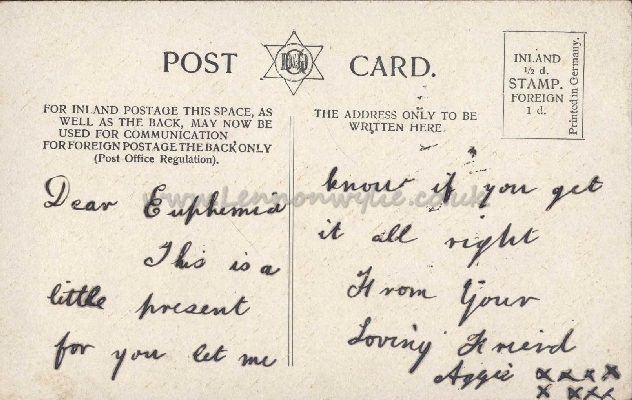 POST CARD.
INLAND
½ d.
STAMP.
FOREIGN
1 d.
Printed in Germany.
FOR INLAND POSTAGE THIS SPACE, AS
WELL AS THE BACK, MAY NOW BE
USED FOR COMMUNICATION
FOR FOREIGN POSTAGE THE BACK ONLY
(Post Office Regulation).
THE ADDRESS ONLY TO BE
WRITTEN HERE.
www.Lennonwylie.co.uk
Dear Euphemia
This is a
little present
for you let me
know if you get
it all right
From Your
Loving Friend
Aggie x x x x
x x x x